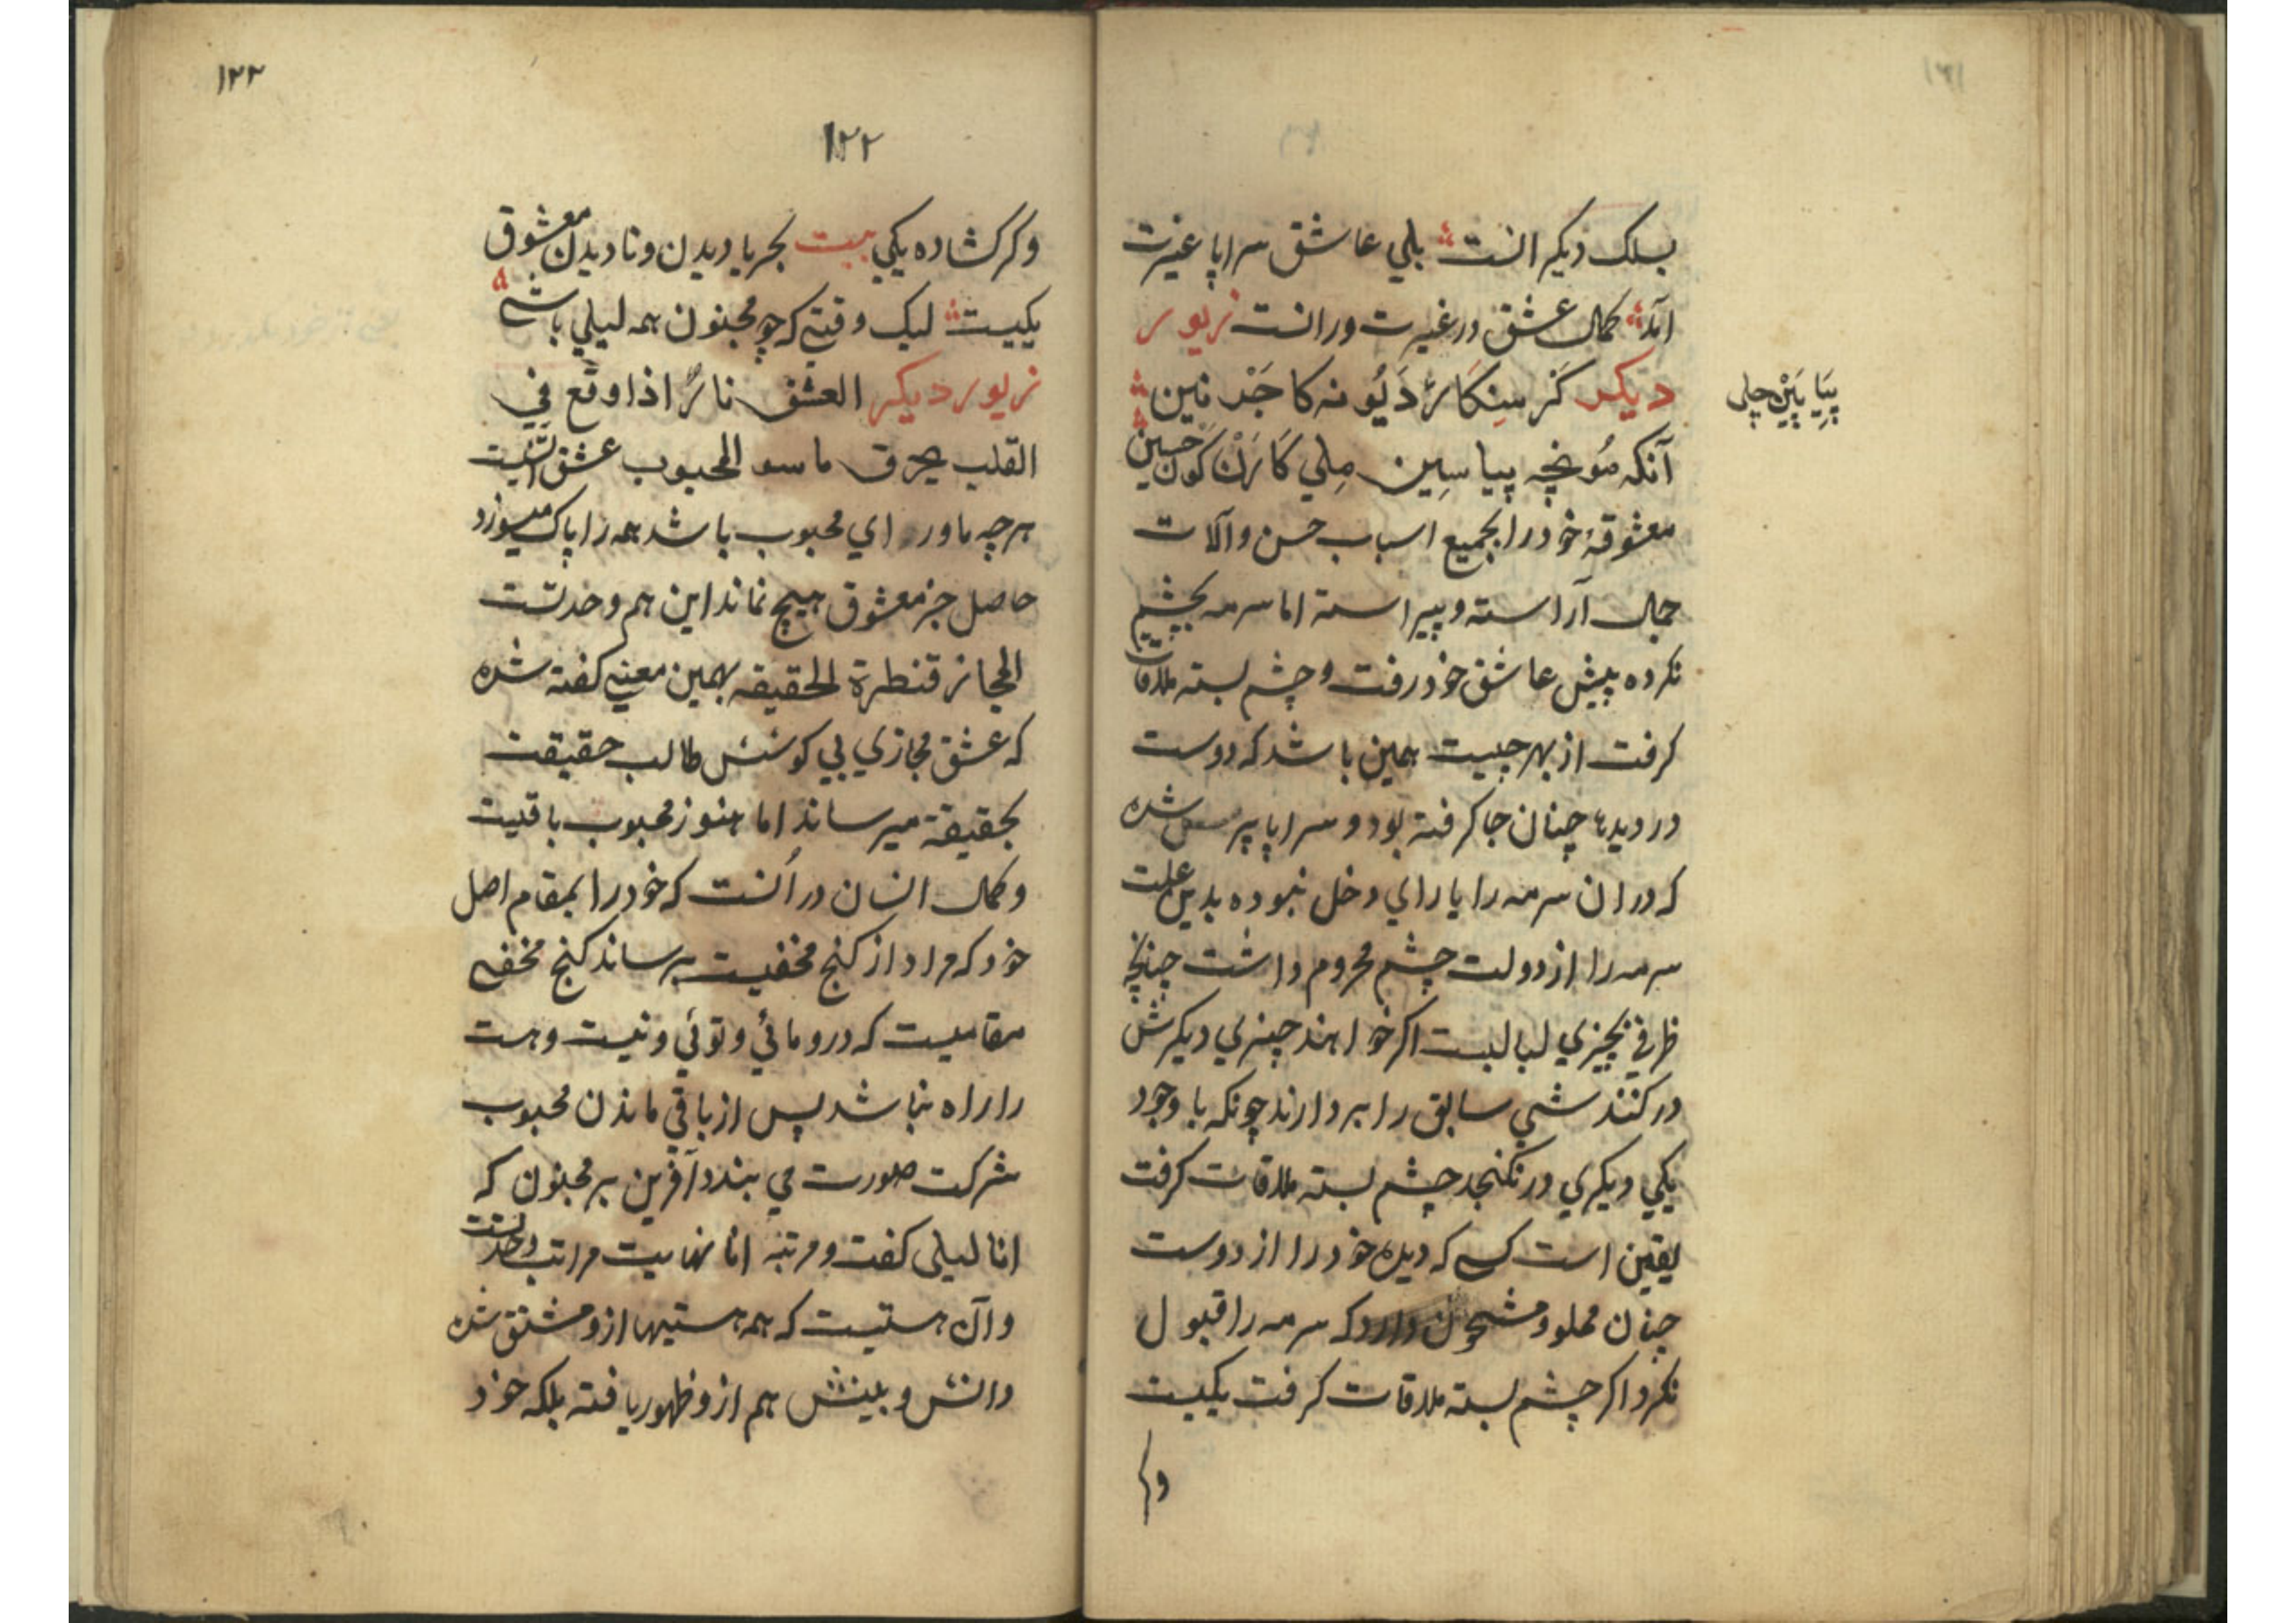 ۱۲۱
بسلک دیکر انست بلي عاشق سراپا غیرت
آمد کمال عشق در غیرت ورانست زیور
دیکر کَر سِنکَار دَیُو نه کا جَر نین
پِیَا پَیْن چلی
آنکه مُونچه پیا سِین مِلي کَارَن کَون حسین
معشوقهٔ خود را بجمیع اسباب حسن و آلات
جمال آراسته و پیراسته اما سرمه بچشم
نکرده پیش عاشق خود رفت و چشم بسته ملاقات
کرفت از بهر چیست همین باشد که دوست
در دیدها چنان جا کرفته بود و سراپا پر شده
که در ان سرمه را یارای دخل نبوده بدین علت
سرمه را از دولت چشم محروم داشت چنانچه
ظرفي بچیزي لبالبست اکر خواهند چیزي دیکرش
در کنند شي سابق را بردارند چونکه با وجود
یکي دیکري در نکنجد چشم بسته ملاقات کرفت
یقین است کسي که دیده خود را از دوست
چنان مملو و مشحون دارد که سرمه را قبول
نکرد اکر چشم بسته ملاقات کرفت یکیست
وکر
۱۲۲
۱۲۲
وکر کشاده یکي بیت بحریا دیدن و نادیدن معشوق
یکیست لیک وقتي که چو مجنون همه لیلي باشي
زیور دیکر العشق نارٌ اذا وقع في
القلب یحرق ما سو المحبوب عشق آتشیست
هر چه ماورای محبوب باشد همه را پاک میسوزد
حاصل جز معشوق هیچ نماند این هم وحدتست
المجاز قنطرة الحقیقه بهمین معني کفته شده
که عشق مجازي بي کوشش طالب حقیقت
بحقیقة میرساند اما هنوز محبوب باقیست
و کمال انسان در انست که خود را بمقام اصل
خود که مراد از کنج مخفیست برساند کنج مخفي
مقامیست که درو مائي و توئي و نیست و هست
را راه نباشد پس از باقي ماندن محبوب
شرکت صورت مي بندد آفرین بر مجنون که
انا لیلی کفت و مرتبه انا نهایت مراتب وحدتست
و آن هستیست که همه هستیها ازو مشتق شده
دانش و بینش هم ازو ظهور یافته بلکه خود